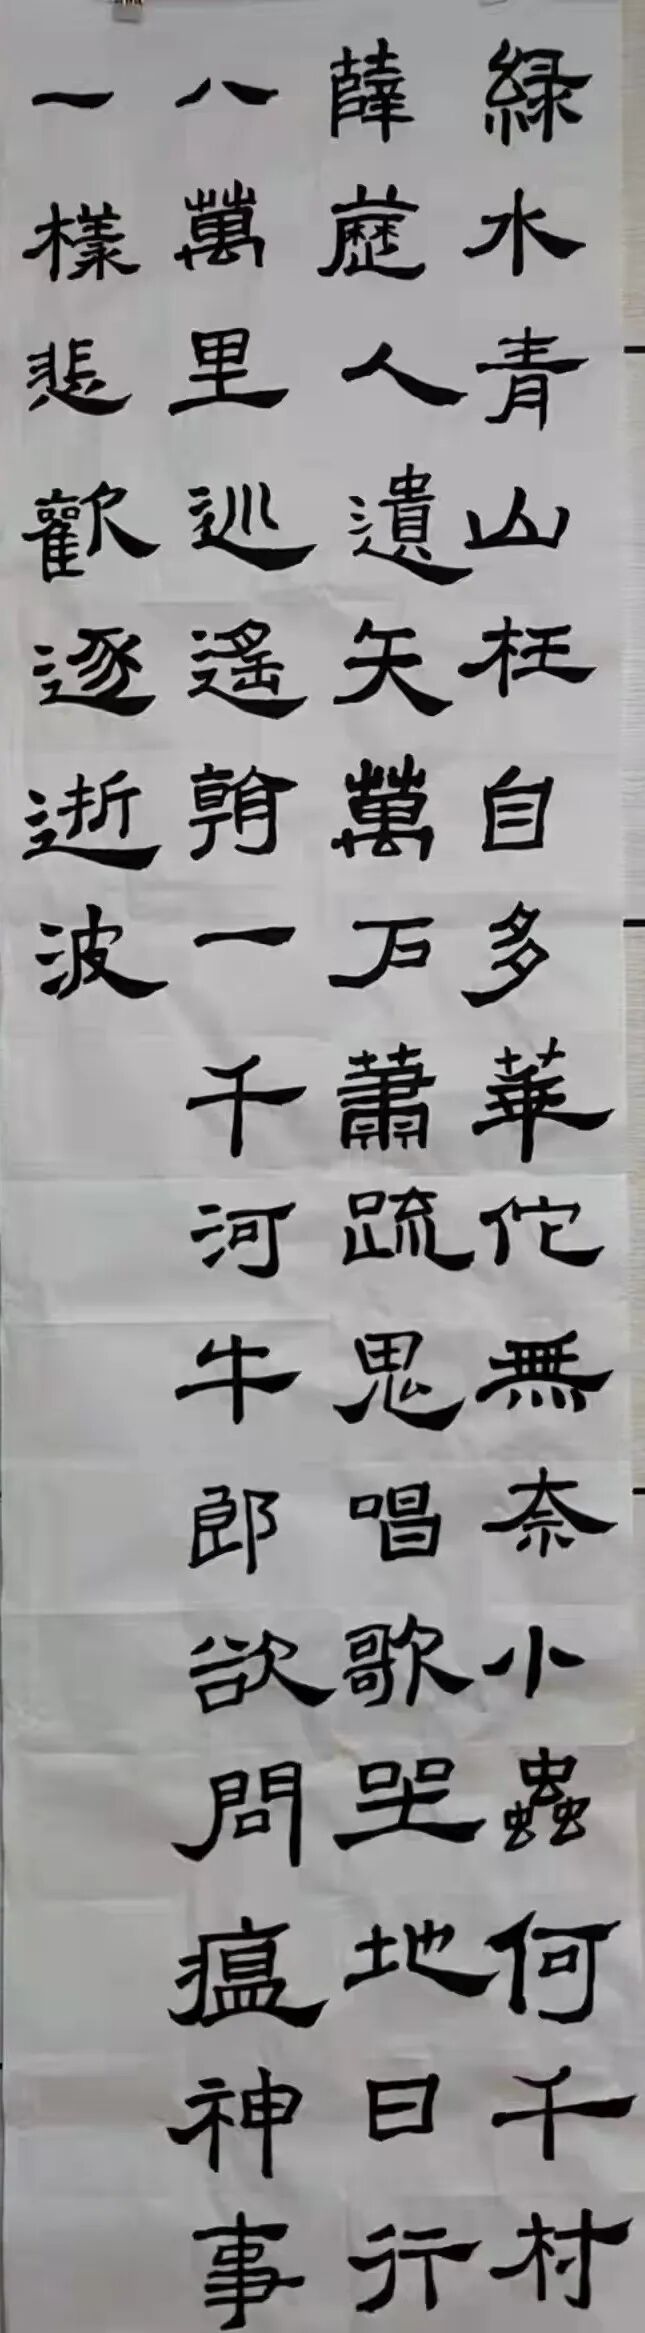 綠水青山枉自多華佗無奈小蟲何千村
薛藶人遺矢萬戶蕭疏鬼唱歌坐地日行
八萬里巡遙看一千河牛郎欲問瘟神事
一樣悲歡逐逝波